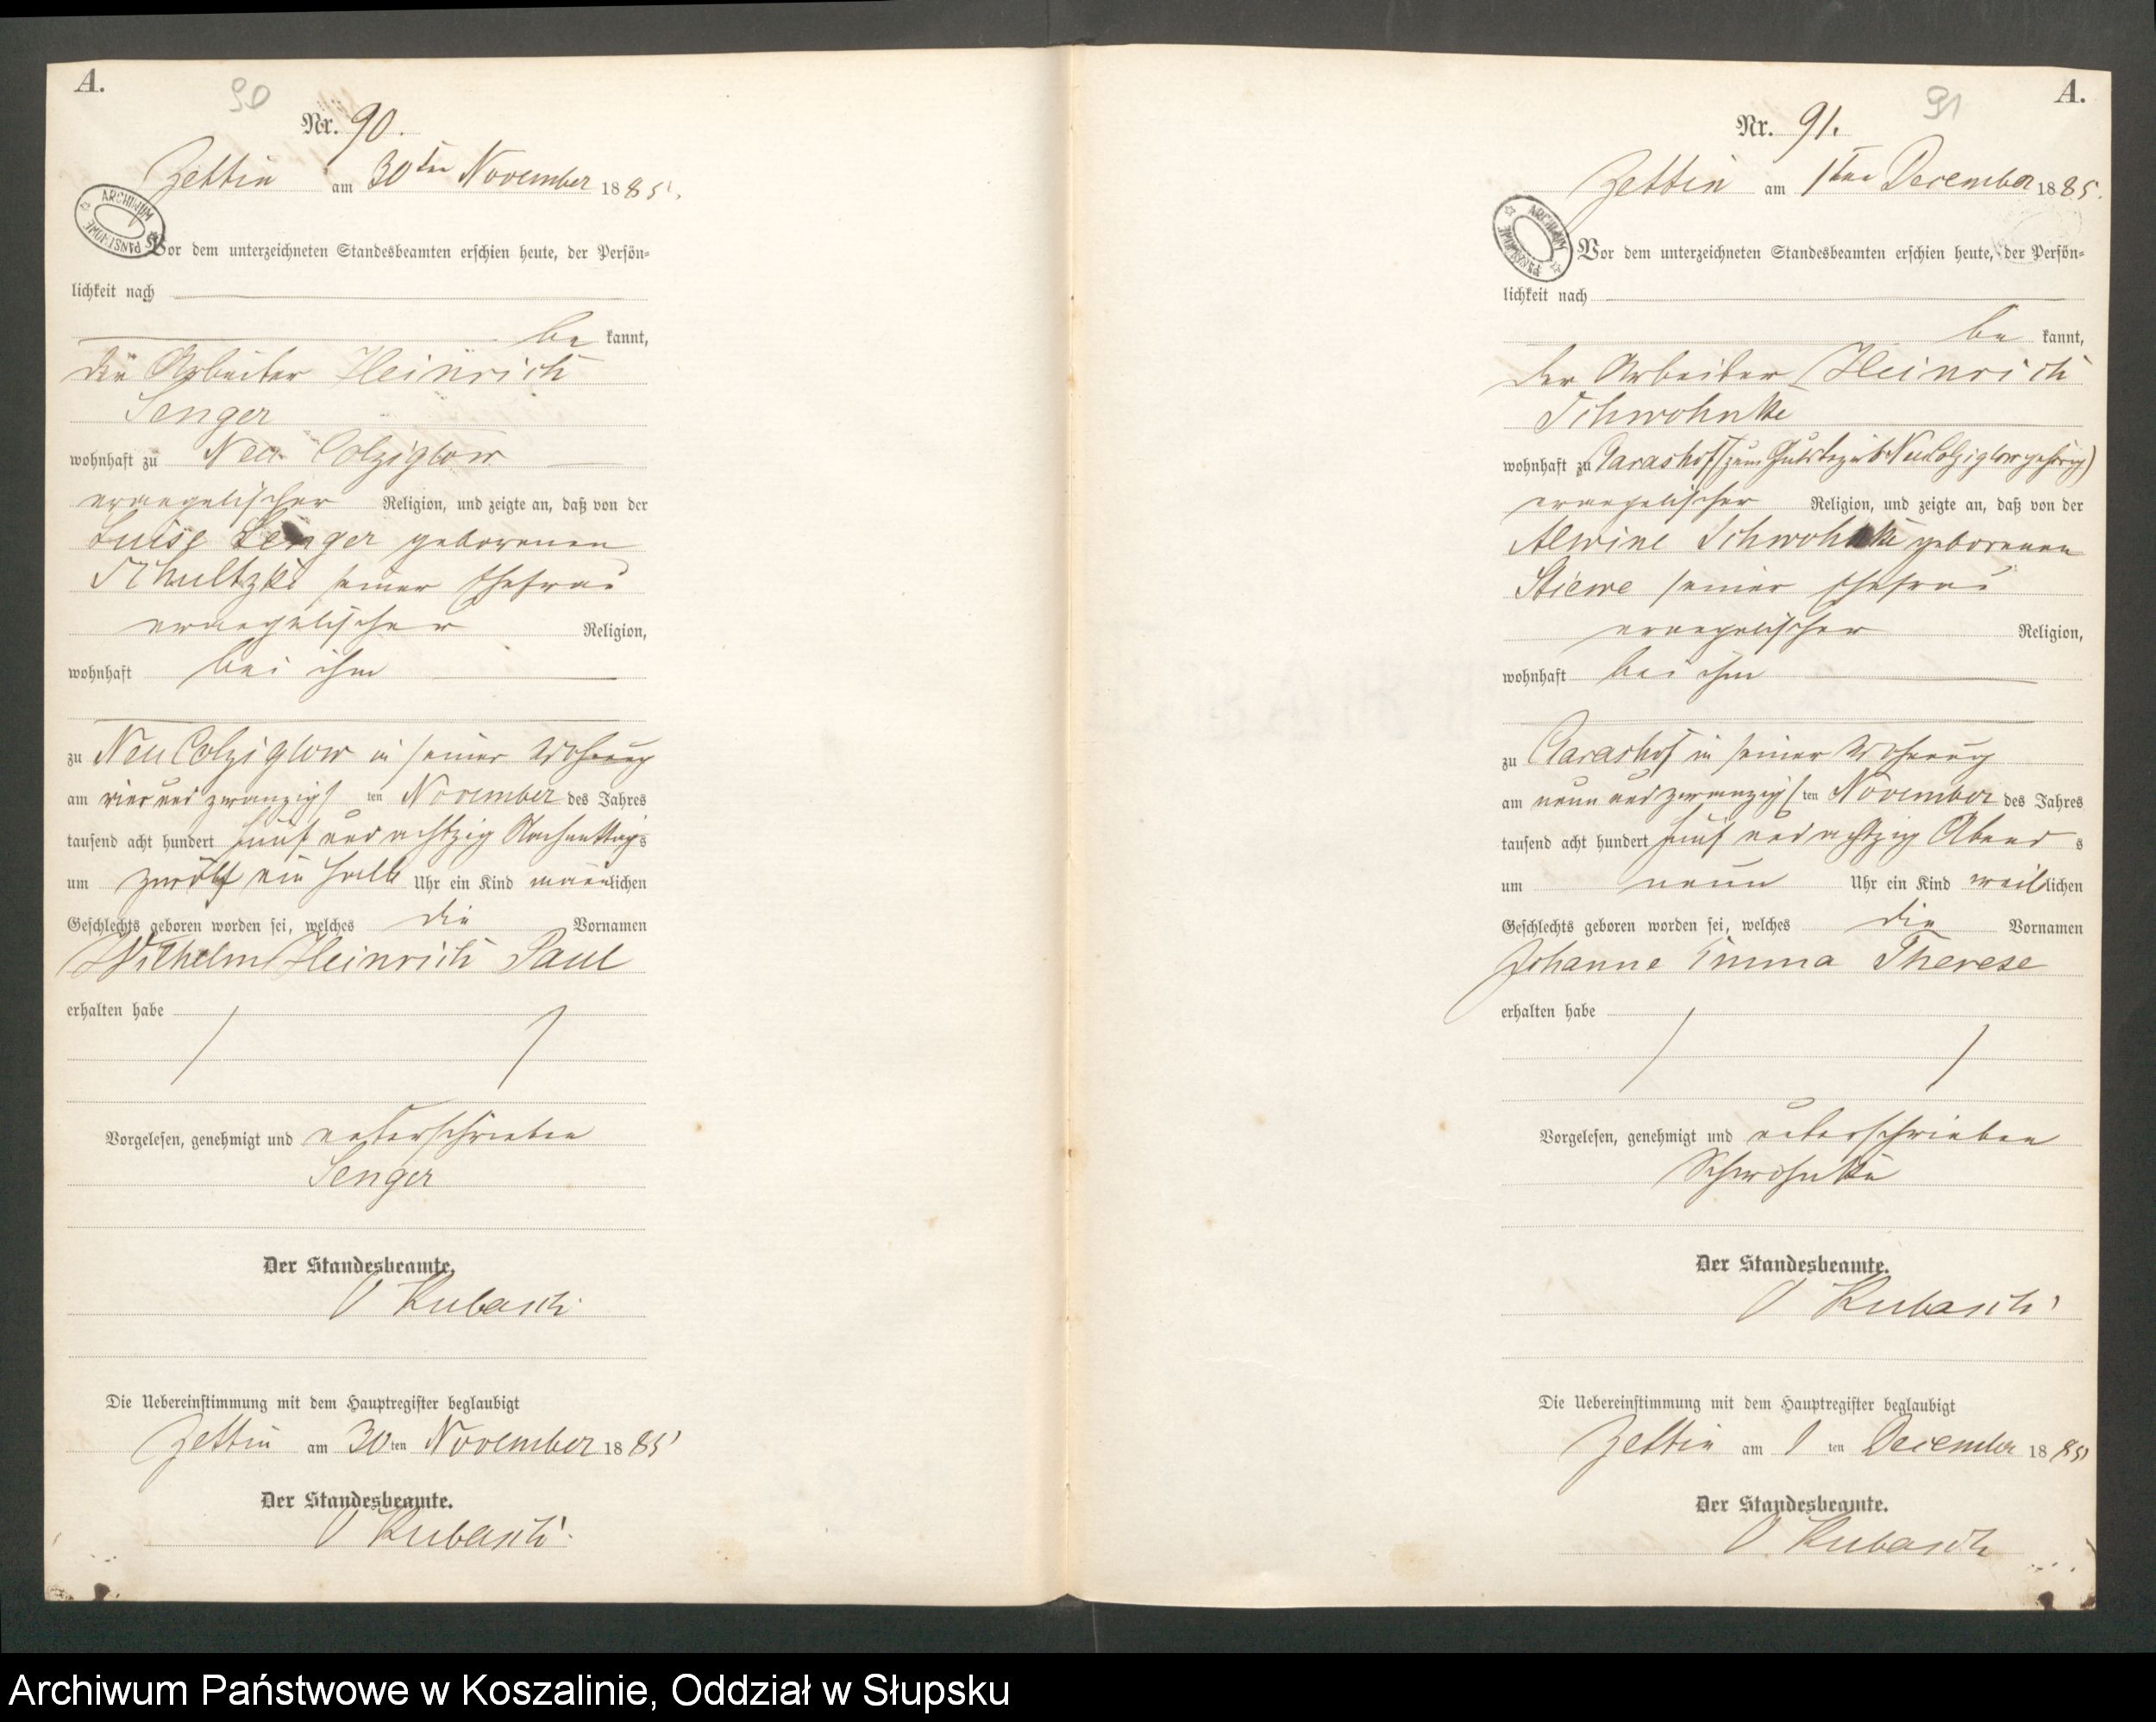 A.
90
Nr. 90.
Zettin am 30ten November 1885.
ARCHIWUM PAŃSTWOWE
Vor dem unterzeichneten Standesbeamten erschien heute, der Persön-
lichkeit nach
be kannt,
der Arbeiter Heinrich
Senger
wohnhaft zu Neu Colziglow
evangelischer Religion, und zeigte an, daß von der
Luise Senger geborenen
Schultzke seiner Ehefrau
evangelischer Religion,
wohnhaft bei ihm
zu Neu Colziglow in seiner Wohnung
am vier und zwanzigsten November des Jahres
tausend acht hundert fünf und achtzig Nachmittags
um zwölf ein halb Uhr ein Kind männlichen
Geschlechts geboren worden sei, welches die Vornamen
Wilhelm Heinrich Paul
erhalten habe
Vorgelesen, genehmigt und unterschrieben
Senger
Der Standesbeamte.
Kubasch
Die Uebereinstimmung mit dem Hauptregister beglaubigt
Zettin am 30ten November 1885
Der Standesbeamte.
Kubasch
A.
91
Nr. 91.
Zettin am 1ten December 1885.
ARCHIWUM PAŃSTWOWE
Vor dem unterzeichneten Standesbeamten erschien heute, der Persön-
lichkeit nach
be kannt,
der Arbeiter Heinrich
Schwohnke
wohnhaft zu Clarashof (zum Gutsbezirk Neu Colziglow gehörig)
evangelischer Religion, und zeigte an, daß von der
Alwine Schwohnke geborenen
Stiewe seiner Ehefrau
evangelischer Religion,
wohnhaft bei ihm
zu Clarashof in seiner Wohnung
am neun und zwanzigsten November des Jahres
tausend acht hundert fünf und achtzig Abends
um neun Uhr ein Kind weiblichen
Geschlechts geboren worden sei, welches die Vornamen
Johanne Emma Therese
erhalten habe
Vorgelesen, genehmigt und unterschrieben
Schwohnke
Der Standesbeamte.
Kubasch
Die Uebereinstimmung mit dem Hauptregister beglaubigt
Zettin am 1ten December 1885
Der Standesbeamte.
Kubasch
Archiwum Państwowe w Koszalinie, Oddział w Słupsku